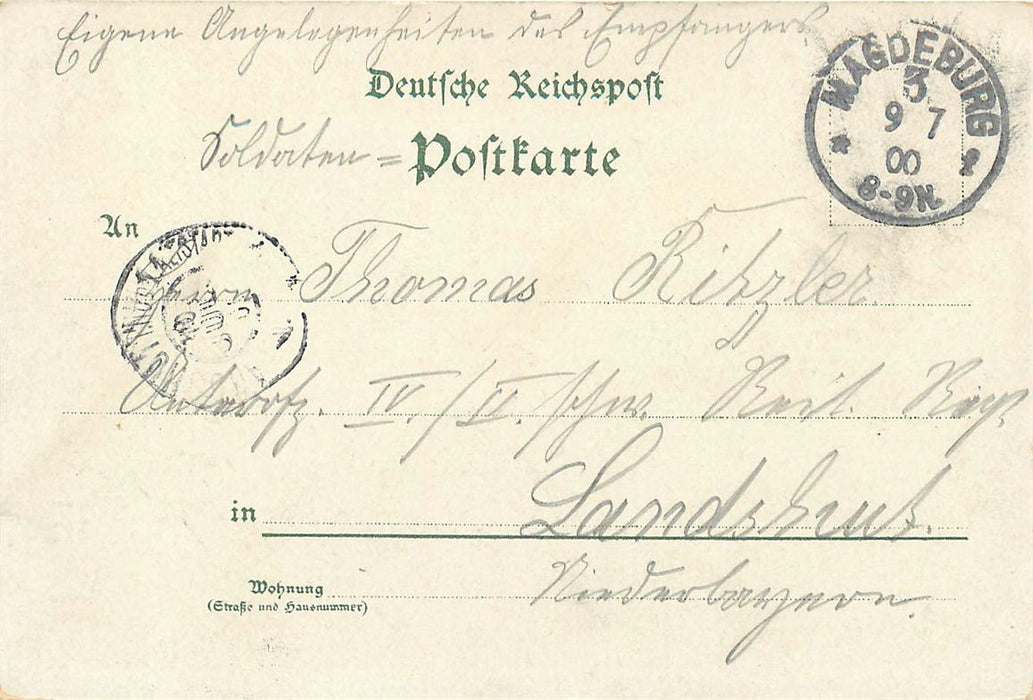 Eigene Angelegenheiten des Empfängers.
Deutsche Reichspost
Soldaten = Postkarte
MAGDEBURG
3
9 7
00
8-9N.
An
Herrn Thomas Ritzler
Unteroffz. IV./II. schw. Reit. Reg.
in Landshut.
Wohnung Niederbayern.
(Straße und Hausnummer)